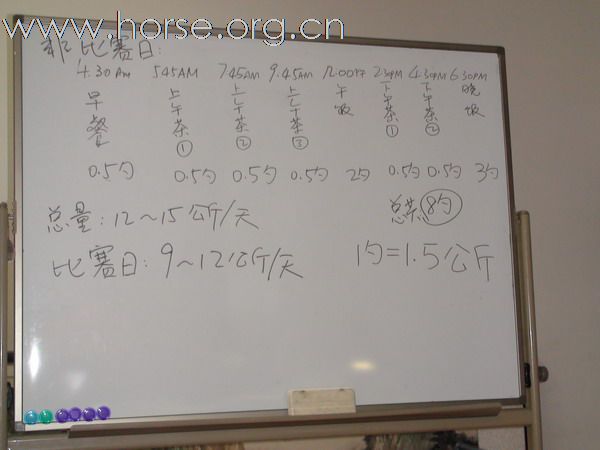 www.horse.org.cn
非比赛日:
4.30 Am 5.45AM 7.45AM 9.45AM 12.00PM 2.30PM 4.30PM 6.30PM
早餐 上午茶① 上午茶② 上午茶③ 午饭 下午茶① 下午茶② 晚饭
0.5勺 0.5勺 0.5勺 0.5勺 2勺 0.5勺 0.5勺 3勺
总量: 12~15公斤/天 总共8勺
比赛日: 9~12公斤/天 1勺=1.5公斤